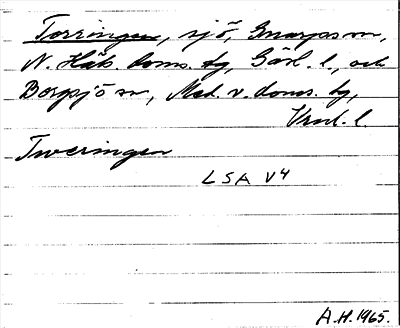 Torringen, sjö, Gnarps sn,
N. Häls. doms. tg, Gävl. l., och
Borgsjö sn, Med. v. doms. tg,
Vnrl. l.
Tweringen
LSA V4
A.H. 1965.